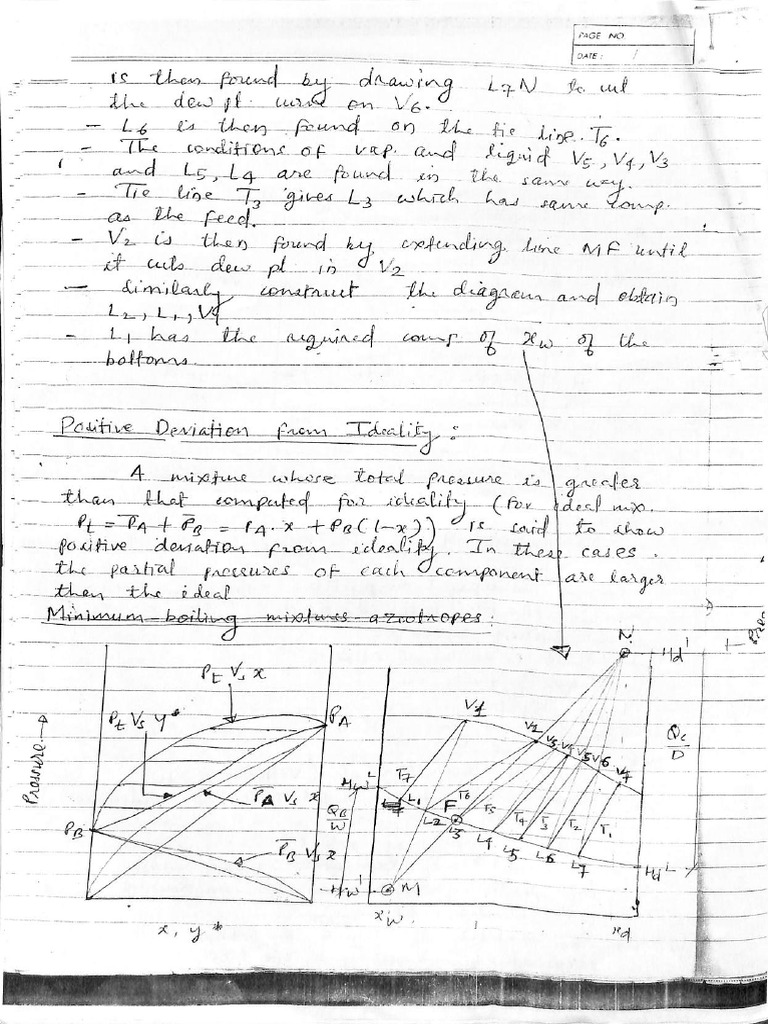 PAGE NO.
DATE: /
is then found by drawing L7N to cut
the dew pt. curve on V6.
- L6 is then found on the tie line T6.
- The conditions of vap. and liquid V5, V4, V3
and L5, L4 are found in the same way.
- Tie line T3 gives L3 which has same comp.
as the feed.
- V2 is then found by extending line MF until
it cuts dew pt in V2
- Similarly construct the diagram and obtain
L2, L1, V1
- L1 has the required comp of xw of the
bottoms.
Positive Deviation from Ideality:
A mixture whose total pressure is greater
than that computed for ideality (for ideal mix.
Pt = P̅A + P̅B = PA. x + PB(1-x)) is said to show
positive deviation from ideality. In these cases.
the partial pressures of each component are larger
then the ideal
Minimum boiling mixtures azeotropes:
Pt Vs x
Pt Vs y*
PA
Pressure →
PA Vs x
PB
P̅B Vs x
x, y*
N
Hd'
QC
D
V1
V2
V3
V4
V5
V6
V7
HwL
T7
T6
T5
T4
T3
T2
T1
L1
L2
F
L3
L4
L5
L6
L7
HdL
QB
W
Hw'
M
xw
xd